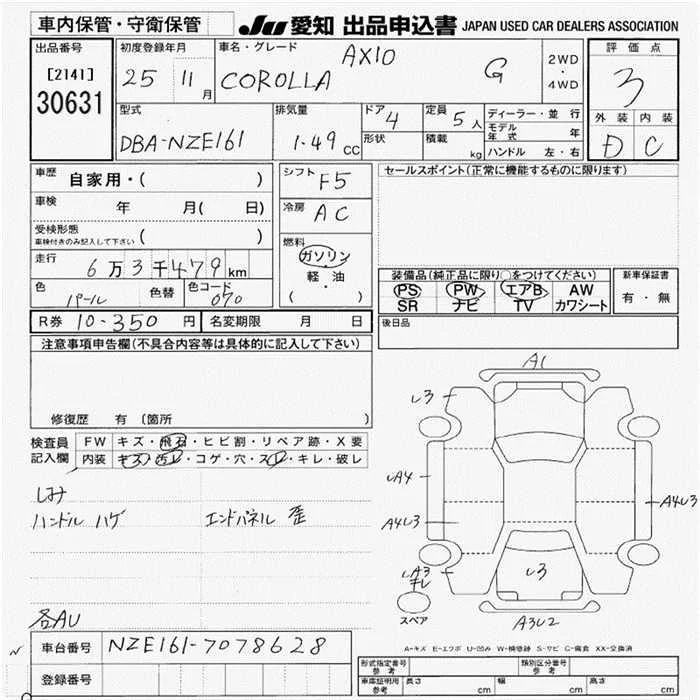 車内保管・守衛保管 JU 愛知 出品申込書 JAPAN USED CAR DEALERS ASSOCIATION
出品番号 [2141] 30631
初度登録年月 25 11月
車名・グレード COROLLA AXIO G
2WD・4WD
評価点 3
外装 D 内装 C
型式 DBA-NZE161
排気量 1.49 CC
ドア 4 形状
定員 5人 積載 kg
ディーラー・並行
モデル年式 年
ハンドル 左・右
車歴 自家用・( )
車検 年 月( 日)
受検形態 車検付きのみ記入して下さい ( )
走行 6万3千479km
色 パール 色替 色コード 070
シフト F5
冷房 AC
燃料 ガソリン・軽油 ( )
セールスポイント(正常に機能するものに限ります)
装備品(純正品に限り○をつけてください)
PS PW エアB AW
SR ナビ TV カワシート
新車保証書 有・無
R券 10-350 円 名変期限 月 日
後日品
注意事項申告欄(不具合内容等は具体的に記入して下さい)
修復歴 有 (箇所 )
検査員記入欄
FW キズ・飛石・ヒビ割・リペア跡・X要
内装 キズ・汚レ・コゲ・穴・スレ・キレ・破レ
しみ
ハンドル ハゲ エンドパネル 歪
各AU
A1
し3
しA4
A4し3
A4し3
しA3
キレ
し3
A3U2
スペア
A-キズ E-エクボ U-凹み W-補修跡 S-サビ C-腐食 XX-交換済
車台番号 NZE161-7078628
登録番号
形式指定番号 参考 類別区分番号 参考
車庫証明用 参考 長さ cm 幅 cm 高さ cm